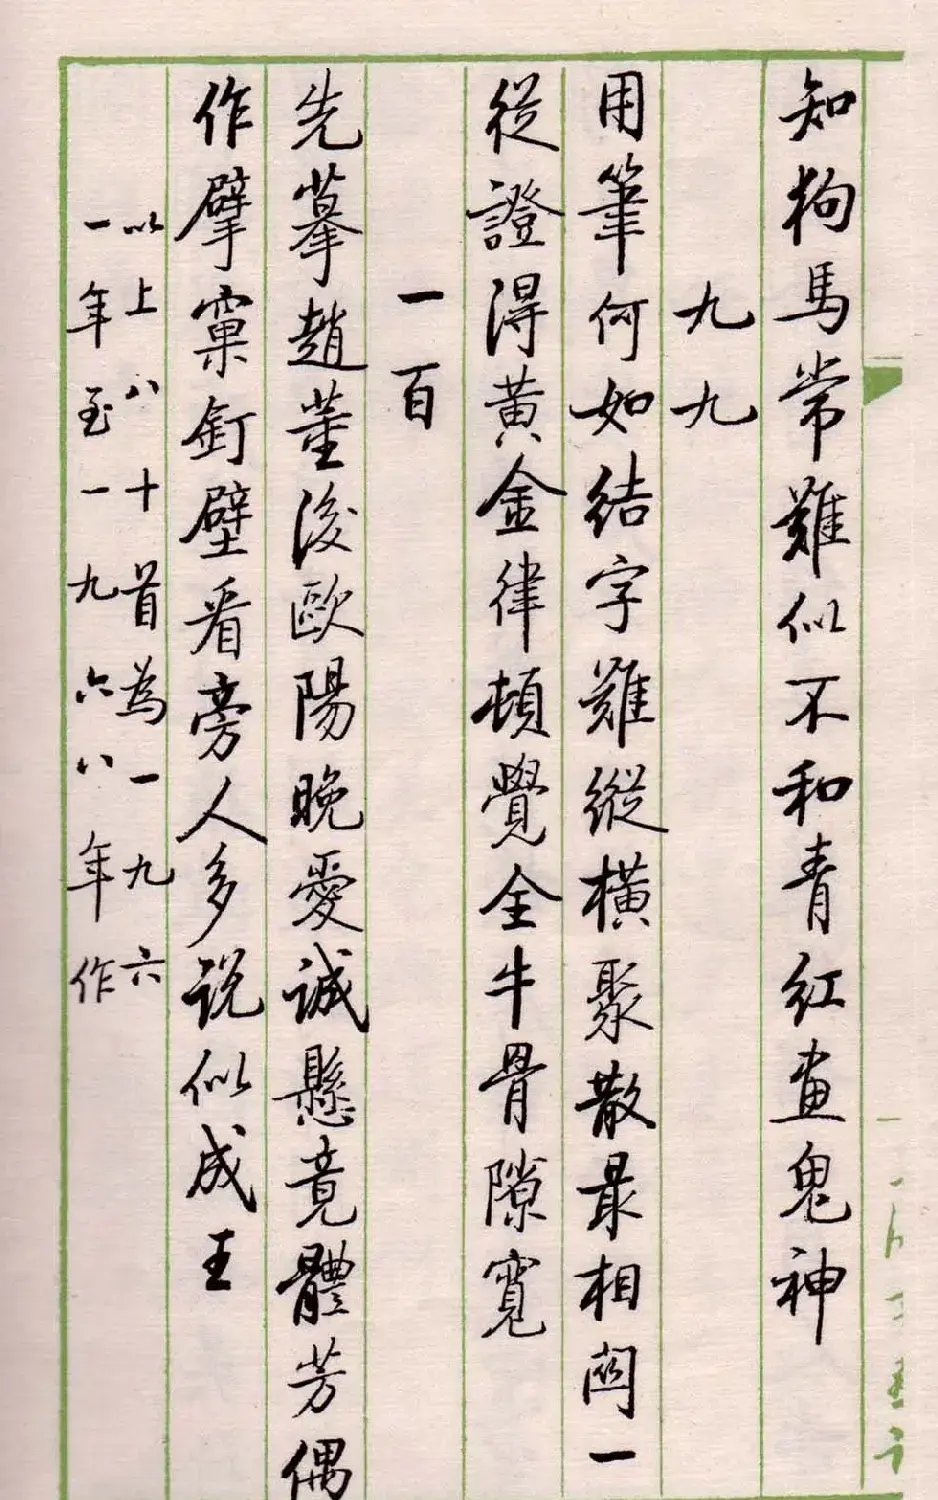 知狗馬常難似不和青紅畫鬼神
九九
用筆何如結字難縱橫聚散最相関一
從證得黃金律頓覺全牛骨隙寬
一百
先摹趙董後歐陽晚愛誠懸竟體芳偶
作擘窠釘壁看旁人多說似成王
以上八十首為一九六
一年至一九六八年作